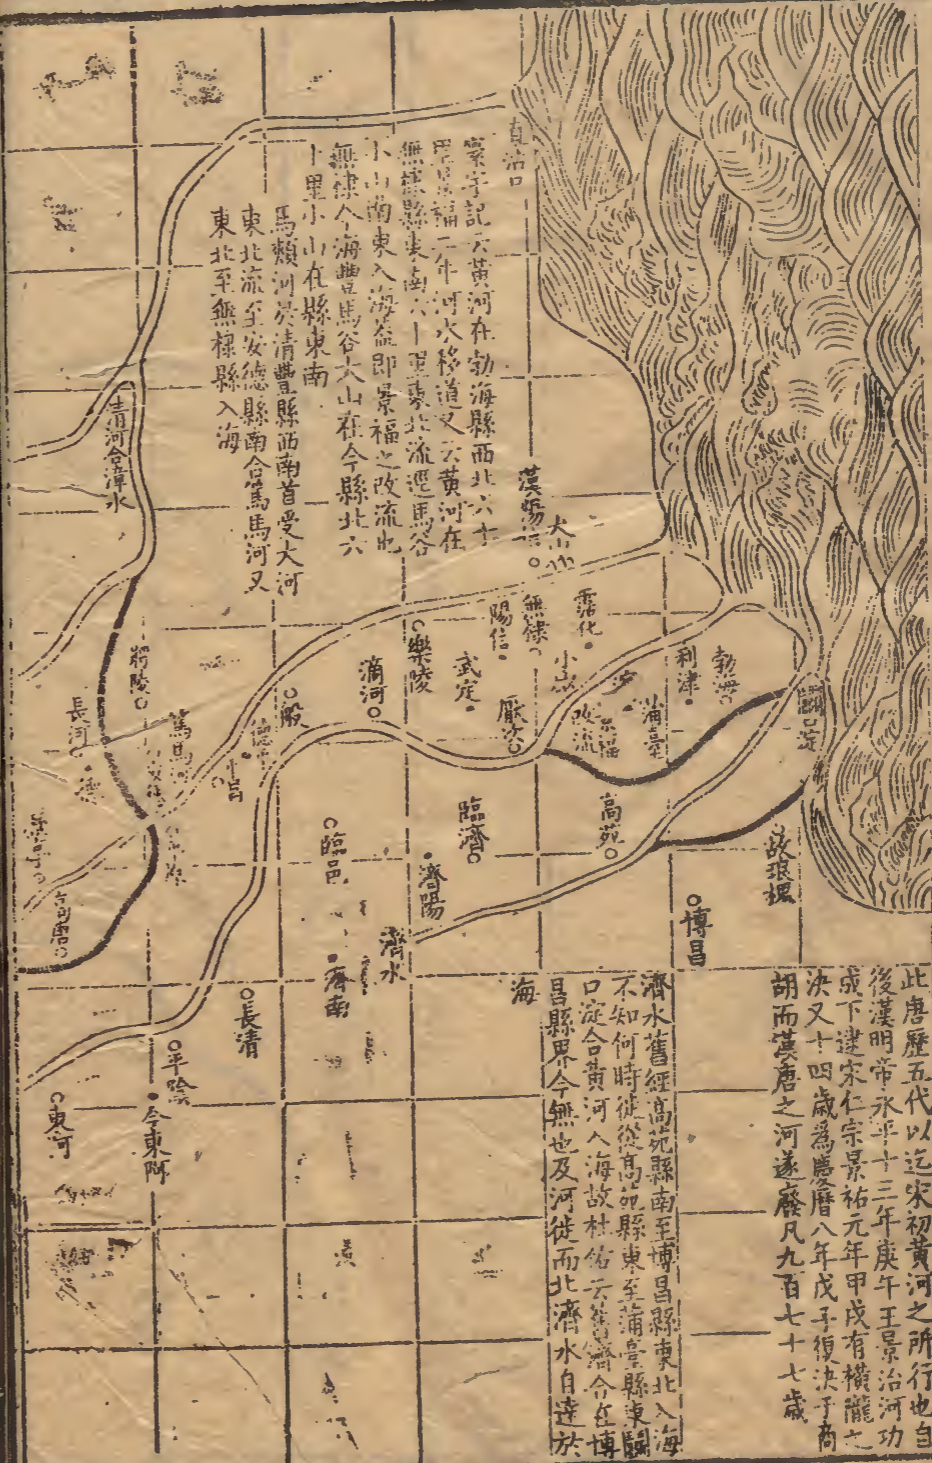 此唐歷五代以迄宋初黃河之所行也自
後漢明帝永平十三年庚午王景治河功
成下逮宋仁宗景祐元年甲戌有橫隴之
決又十四歲爲慶曆八年戊子復決于商
胡而漢唐之河遂廢凡九百七十七歲
濟水舊經高苑縣南至博昌縣東北入海
不知何時徙從高苑縣東至蒲臺縣東鬬
口淀合黃河入海故杜佑云舊濟合在博
昌縣界今無也及河徙而北濟水自達於
海
直沽口
寰宇記云黃河在勃海縣西北六十
里景福二年河水移道又云黃河在
無棣縣東南六十里東北流逕馬谷
小山南東入海葢即景福之改流也
無棣今海豐馬谷大山在今縣北六
十里小山在縣東南
馬頰河於清豐縣西南首受大河
東北流至安德縣南合篤馬河又
東北至無棣縣入海
清河合漳水
大山
霑化
無棣
陽信
小山
利津
勃海
蒲臺
景福
改流
厭次
武定
樂陵
滴河
般
將陵
長河
德
篤馬河
平昌
高唐
鬬口淀
故琅槐
高苑
博昌
臨濟
濟陽
濟水
臨邑
濟南
長清
平陰
今東阿
東河